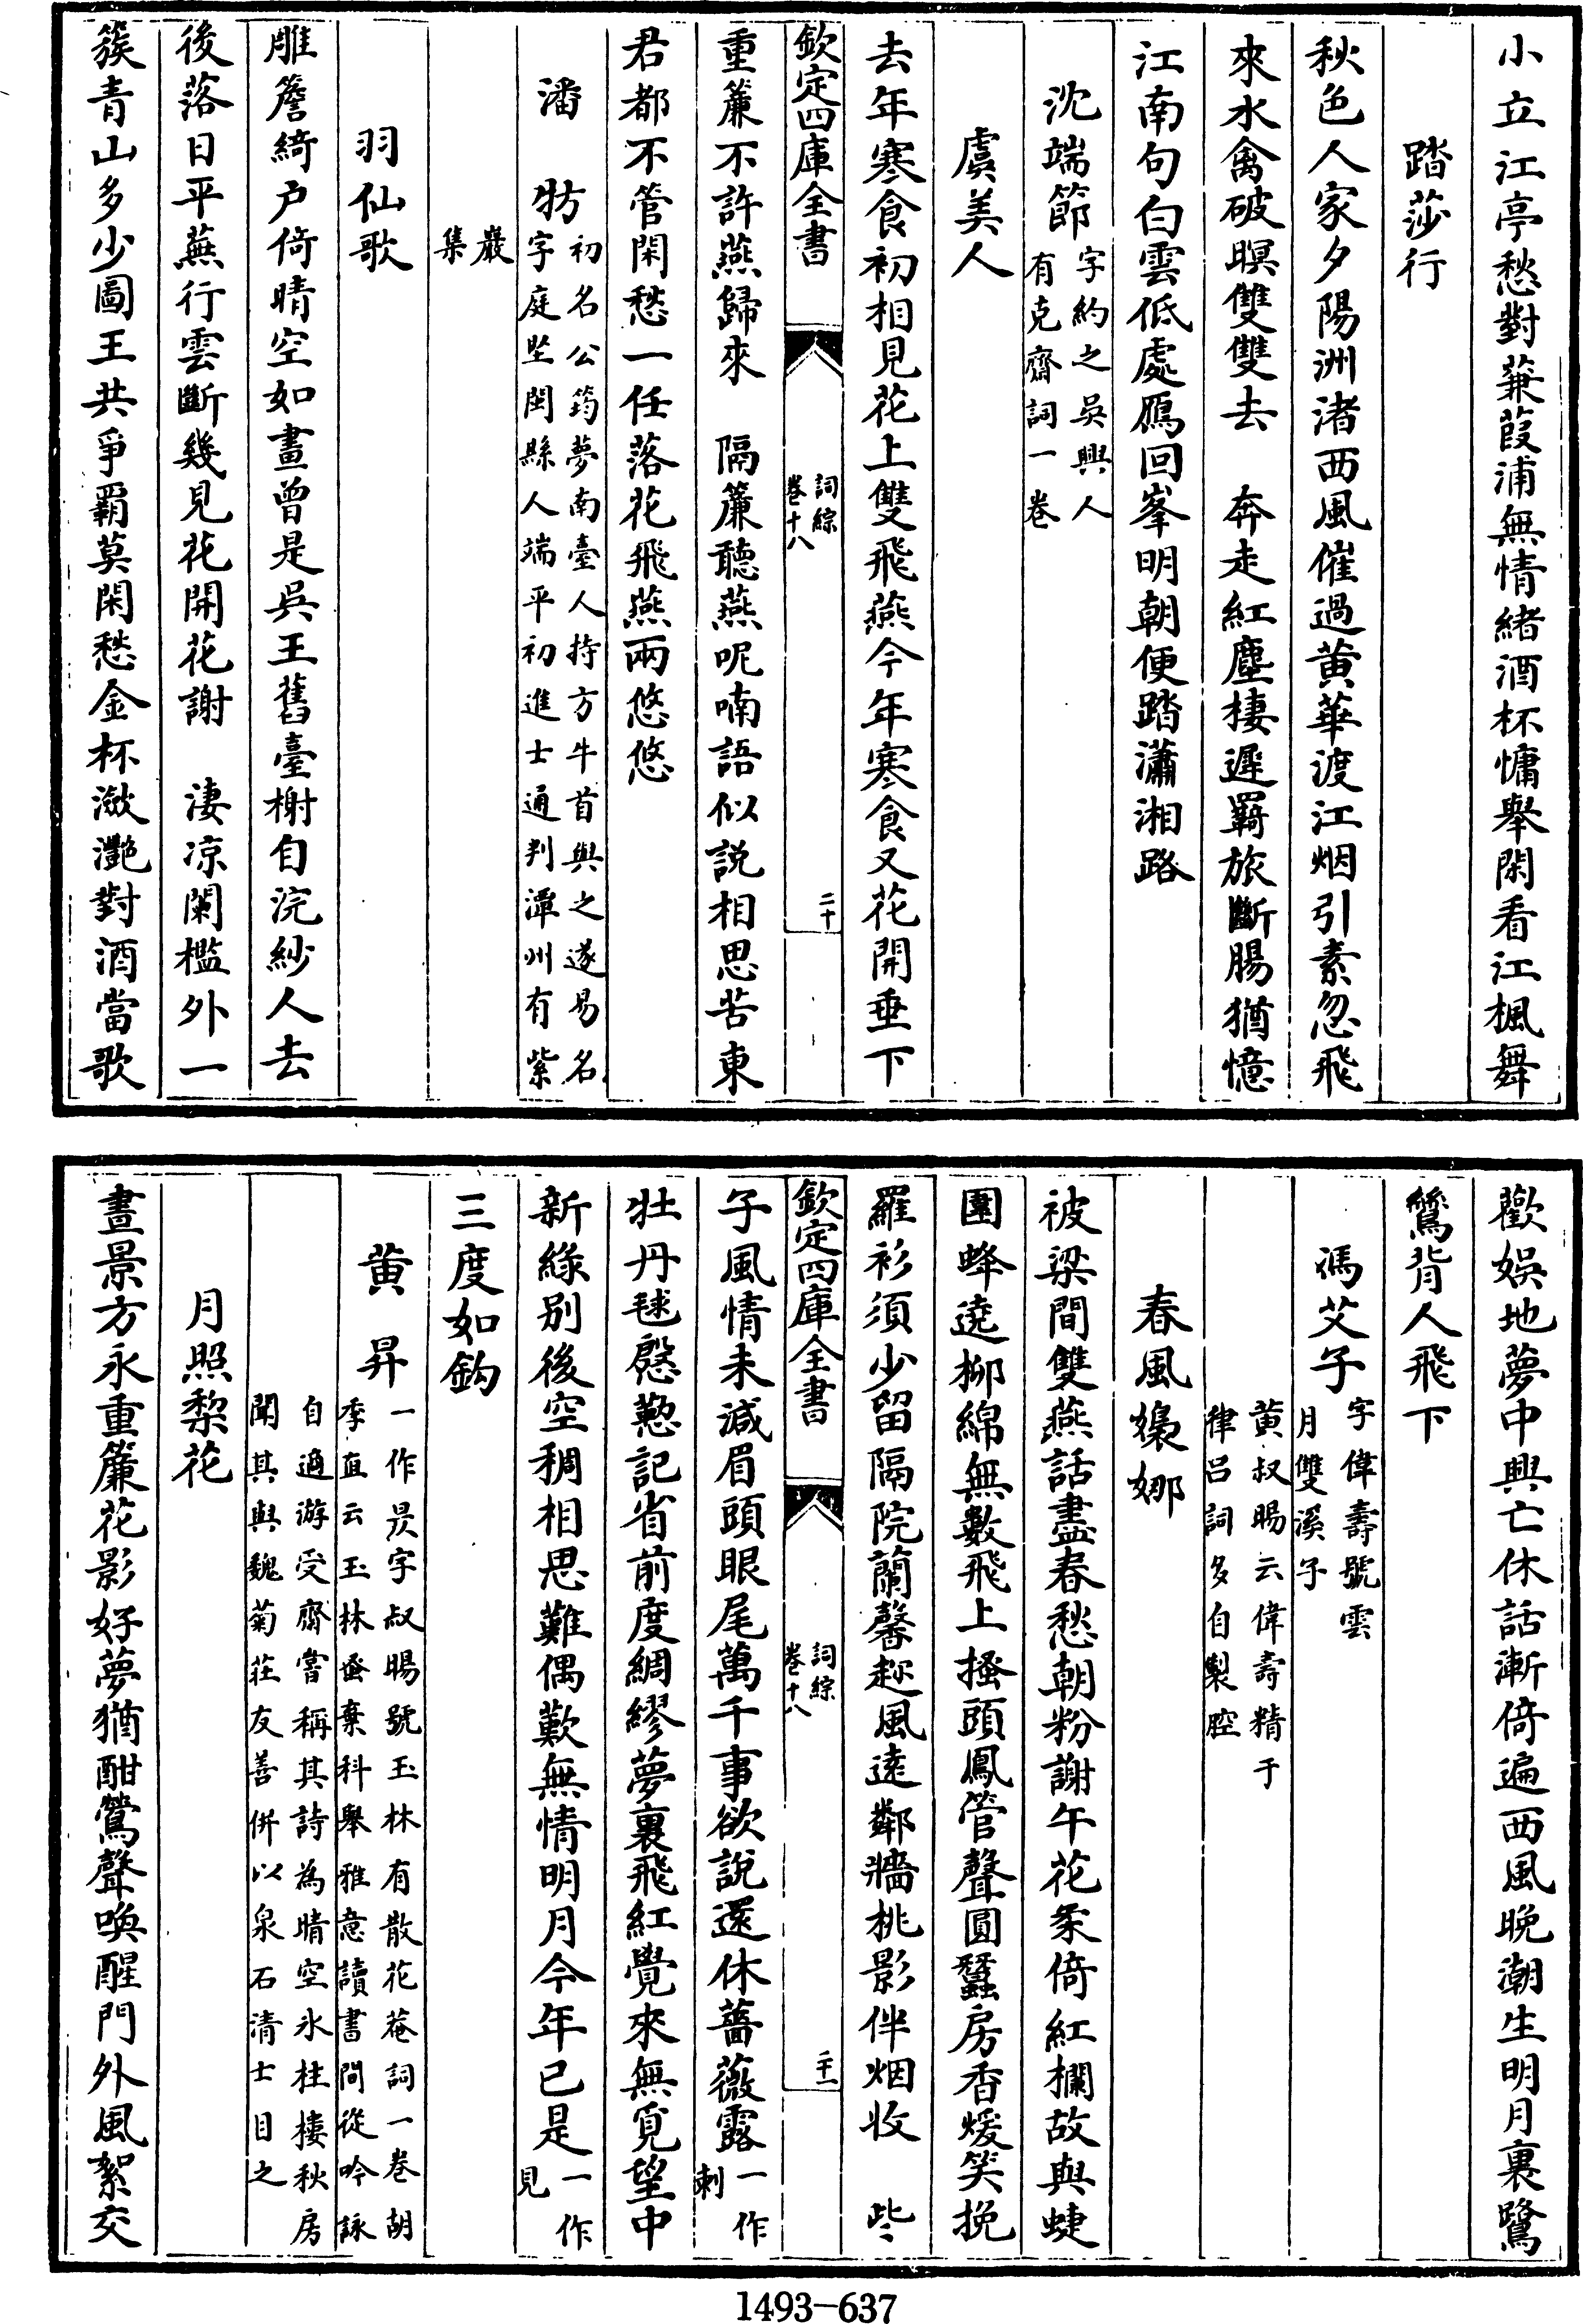 小立江亭愁對蒹葭浦無情緒酒杯慵舉閑看江楓舞
踏莎行
秋色人家夕陽洲渚西風催過黄華渡江烟引素忽飛
來水禽破暝雙雙去　奔走紅塵棲遲羇旅斷腸猶憶
江南句白雲低處鴈回峯明朝便踏瀟湘路
沈端節字約之吳興人
有克齋詞一卷
虞美人
去年寒食初相見花上雙飛燕今年寒食又花開垂下
欽定四庫全書
詞綜
卷十八
二十
重簾不許燕歸來　隔簾聽燕呢喃語似説相思苦東
君都不管閑愁一任落花飛燕兩悠悠
潘　牥初名公筠夢南臺人持方牛首與之遂易名
字庭坚閩縣人端平初進士通判潭州有紫
巖
集
羽仙歌
雕簷綺户倚晴空如畫曾是吳王舊臺榭自浣紗人去
後落日平蕪行雲斷幾見花開花謝　淒凉闌檻外一
簇青山多少圖王共爭覇莫閑愁金杯瀲灩對酒當歌
歡娛地夢中興亡休話漸倚遍西風晚潮生明月裏鷺
鷥背人飛下
馮艾子字偉壽號雲
月雙溪子
黄叔暘云偉壽精于
律呂詞多自製腔
春風嫋娜
被梁間雙燕話盡春愁朝粉謝午花柔倚紅欄故與蜨
圍蜂遶柳綿無數飛上搔頭鳳管聲圓蠶房香煖笑挽
羅衫須少留隔院蘭馨趂風遠鄰牆桃影伴烟收　些
欽定四庫全書
詞綜
卷十八
二十一
子風情未減眉頭眼尾萬千事欲説還休薔薇露一作
刺
牡丹毬慇懃記省前度綢繆夢裏飛紅覺來無覓望中
新緑别後空稠相思難偶歎無情明月今年已是一作
見
三度如鈎
黄　昇一作昃字叔暘號玉林有散花菴詞一卷胡
季直云玉林蚤棄科舉雅意讀書間從吟詠
自適游受齋嘗稱其詩為晴空氷柱樓秋房
聞其與魏菊莊友善併以泉石清士目之
月照梨花
晝景方永重簾花影好夢猶酣鶯聲喚醒門外風絮交
1493—637